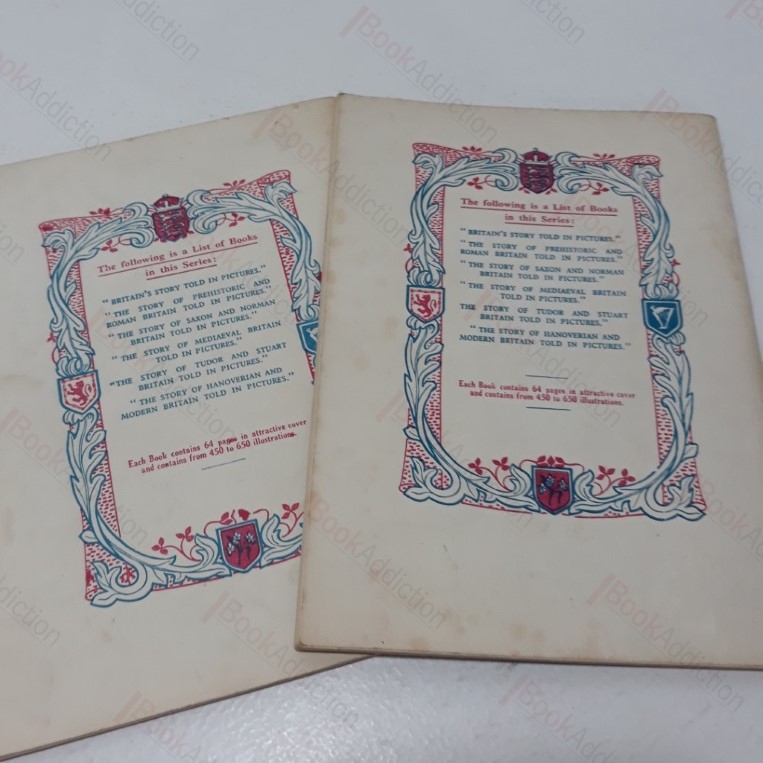 The following is a List of Books
in this Series:
"BRITAIN'S STORY TOLD IN PICTURES."
"THE STORY OF PREHISTORIC AND
ROMAN BRITAIN TOLD IN PICTURES."
"THE STORY OF SAXON AND NORMAN
BRITAIN TOLD IN PICTURES."
"THE STORY OF MEDIAEVAL BRITAIN
TOLD IN PICTURES."
"THE STORY OF TUDOR AND STUART
BRITAIN TOLD IN PICTURES."
"THE STORY OF HANOVERIAN AND
MODERN BRITAIN TOLD IN PICTURES."
Each Book contains 64 pages in attractive cover
and contains from 450 to 650 illustrations.
The following is a List of Books
in this Series:
"BRITAIN'S STORY TOLD IN PICTURES."
"THE STORY OF PREHISTORIC AND
ROMAN BRITAIN TOLD IN PICTURES."
"THE STORY OF SAXON AND NORMAN
BRITAIN TOLD IN PICTURES."
"THE STORY OF MEDIAEVAL BRITAIN
TOLD IN PICTURES."
THE STORY OF TUDOR AND STUART
BRITAIN TOLD IN PICTURES."
"THE STORY OF HANOVERIAN AND
MODERN BRITAIN TOLD IN PICTURES."
Each Book contains 64 pages in attractive cover
and contains from 450 to 650 illustrations.
BookAddiction